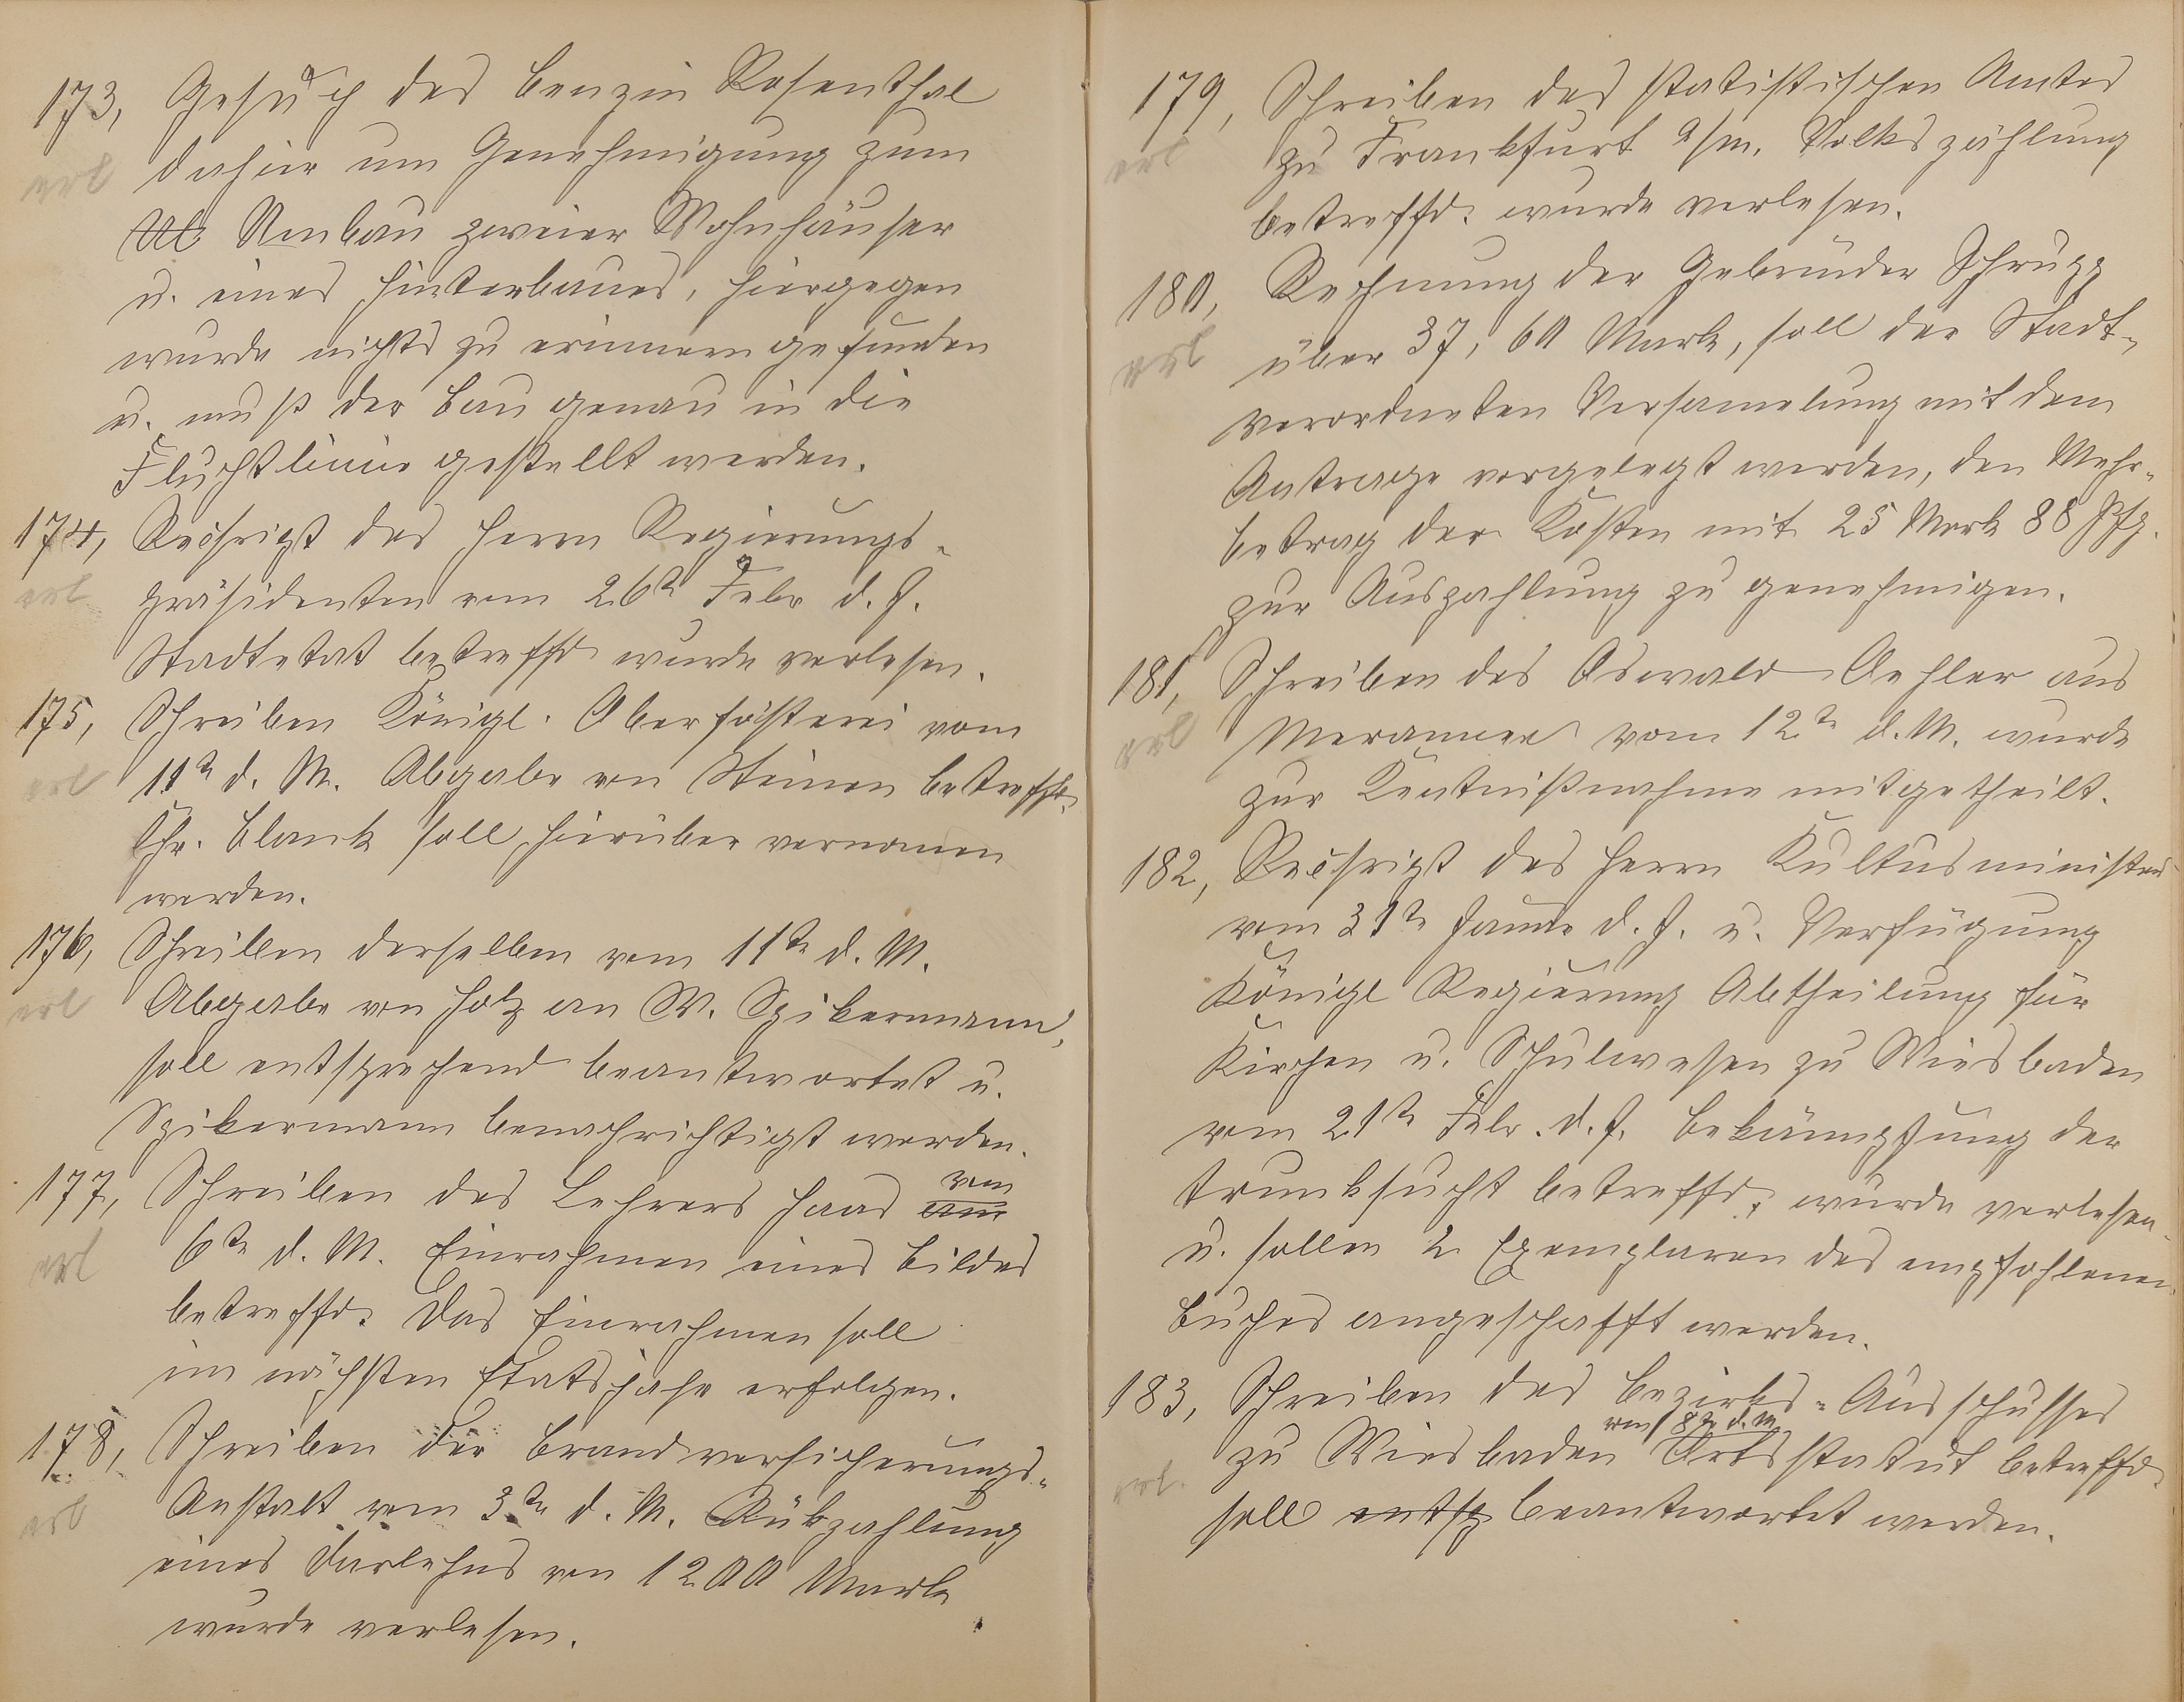 173, Gesuch des Benzin Rosenthal
erl dahier um Genehmigung zum
Neubau zweier Wohnhäuser
u. eines Hinterbaues, hiergegen
wurde nichts zu erinnern gefunden
u. muß der Bau genau in die
Fluchtlinie gestellt werden.
174, Rescript des Herrn Regierungs-
erl präsidenten vom 26te Febr d. J.
Stadtetat betreffd. wurde verlesen.
175, Schreiben Königl. Oberfösterei vom
erl 11te d. M. Abgabe von Steinen betreffd.
Chr. Blank soll hierüber vernomen
werden.
176, Schreiben derselben vom 11te d. M.
erl Abgabe von Holz an W. Spikermann,
soll entsprechend beantwortet u.
Spikermann benachrichtigt werden.
177, Schreiben des Lehrers Haas vom
erl 6te d. M. Einrahmen eines Bildes
betreffd. Das Einrahmen soll
im nächsten Etatsjahr erfolgen.
178, Schreiben der Brandversicherungs-
erl Anstalt vom 3te d. M. Rükzahlung
eines Darlehns von 1200 Mark
wurde verlesen.
179, Schreiben des statistischen Amtes
erl zu Frankfurt a/m. Volkszählung
betreffd. wurde verlesen.
180, Rechnung der Gebrüder Schrupp
erl über 37,60 Mark, soll der Stadt-
verordneten Versamelung mit dem
Antrage vorgelegt werden, den Mehr-
betrag der Kosten mit 25 Mark 88 Pfg.
zur Auszahlung zu genehmigen.
181, Schreiben des Oswald Oehler aus
erl vom 12te d. M. wurde
zur Kentnißnahme mitgetheilt.
182, Rescript des Herrn Kultusministers
vom 31te Januar d. J. u. Verfügung
Königl Regierung Abtheilung für
Kirchen u. Schulwesen zu Wiesbaden
vom 21te Febr. d. J. Bekämpfung der
Trunksucht betreffd. wurde verlesen
u. sollen 2 Exemplaren des empfohlenen
Buches angeschafft werden.
183, Schreiben des Bezirks-Ausschusses
vom 8te d. M.
erl. zu Wiesbaden Ortsstatut betreffd.
soll entsp beantwortet werden.